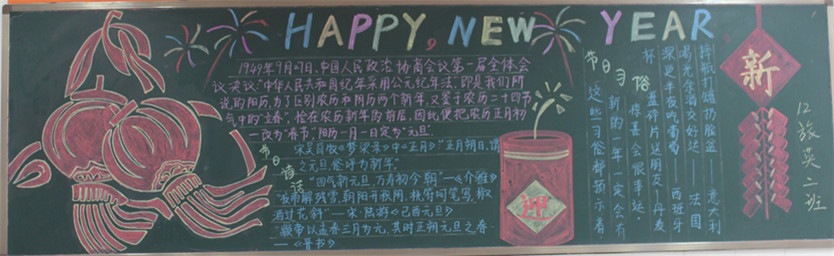 HAPPY, NEW YEAR.
1949年9月27日,中国人民政治协商会议第一届全体会
议决议"中华人民共和国纪年采用公元纪年法,即是我们所
说的阳历,为了区别农历和阳历两个新年,又鉴于农历二十四节
气中的"立春"恰在农历新年的前后,因此便把农历正月初
一改为"春节",阳历一月一日定为"元旦"
节日诗话
宋吴自牧《梦梁录》中《正月》"正月朔日,谓
之元旦,俗呼为新年。"
"四气新元旦,万寿初今朝"——《介雅》
朝阳开夜阴,
酒过花斜"——宋·陆游《己酉元旦》
颛帝以孟春三月为元,其时正朔元旦之春
——《晋书》
迎
节日习俗
摔瓶打罐扔脸盆——意大利
喝光余酒交好运——法国
深更半夜吃葡萄——西班牙
杯盘碎片送朋友——丹麦
这些习俗都预示着
新的一年一定会有
惊喜会很幸运。
新
12旅英二班